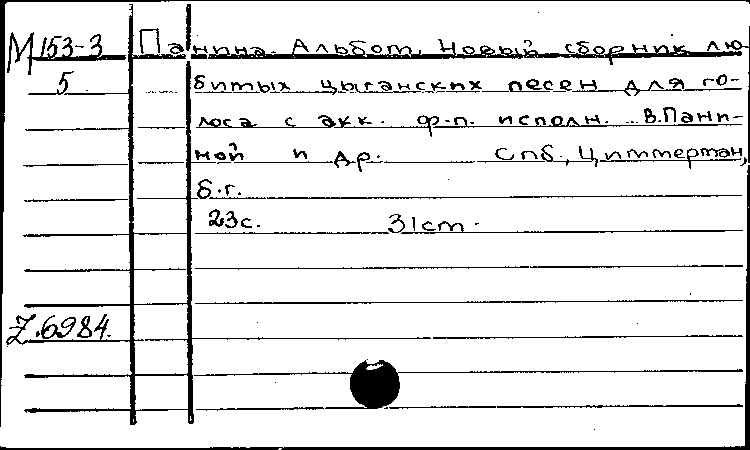 М 153-3 Панина. Альбом. Новый сборник лю-
5 битых цыганских песен для го-
лоса с акк. ф-п. исполн. В.Пани-
ной и др. Спб., Циммерман,
б.г.
23с. 31cm.
Z.6984.